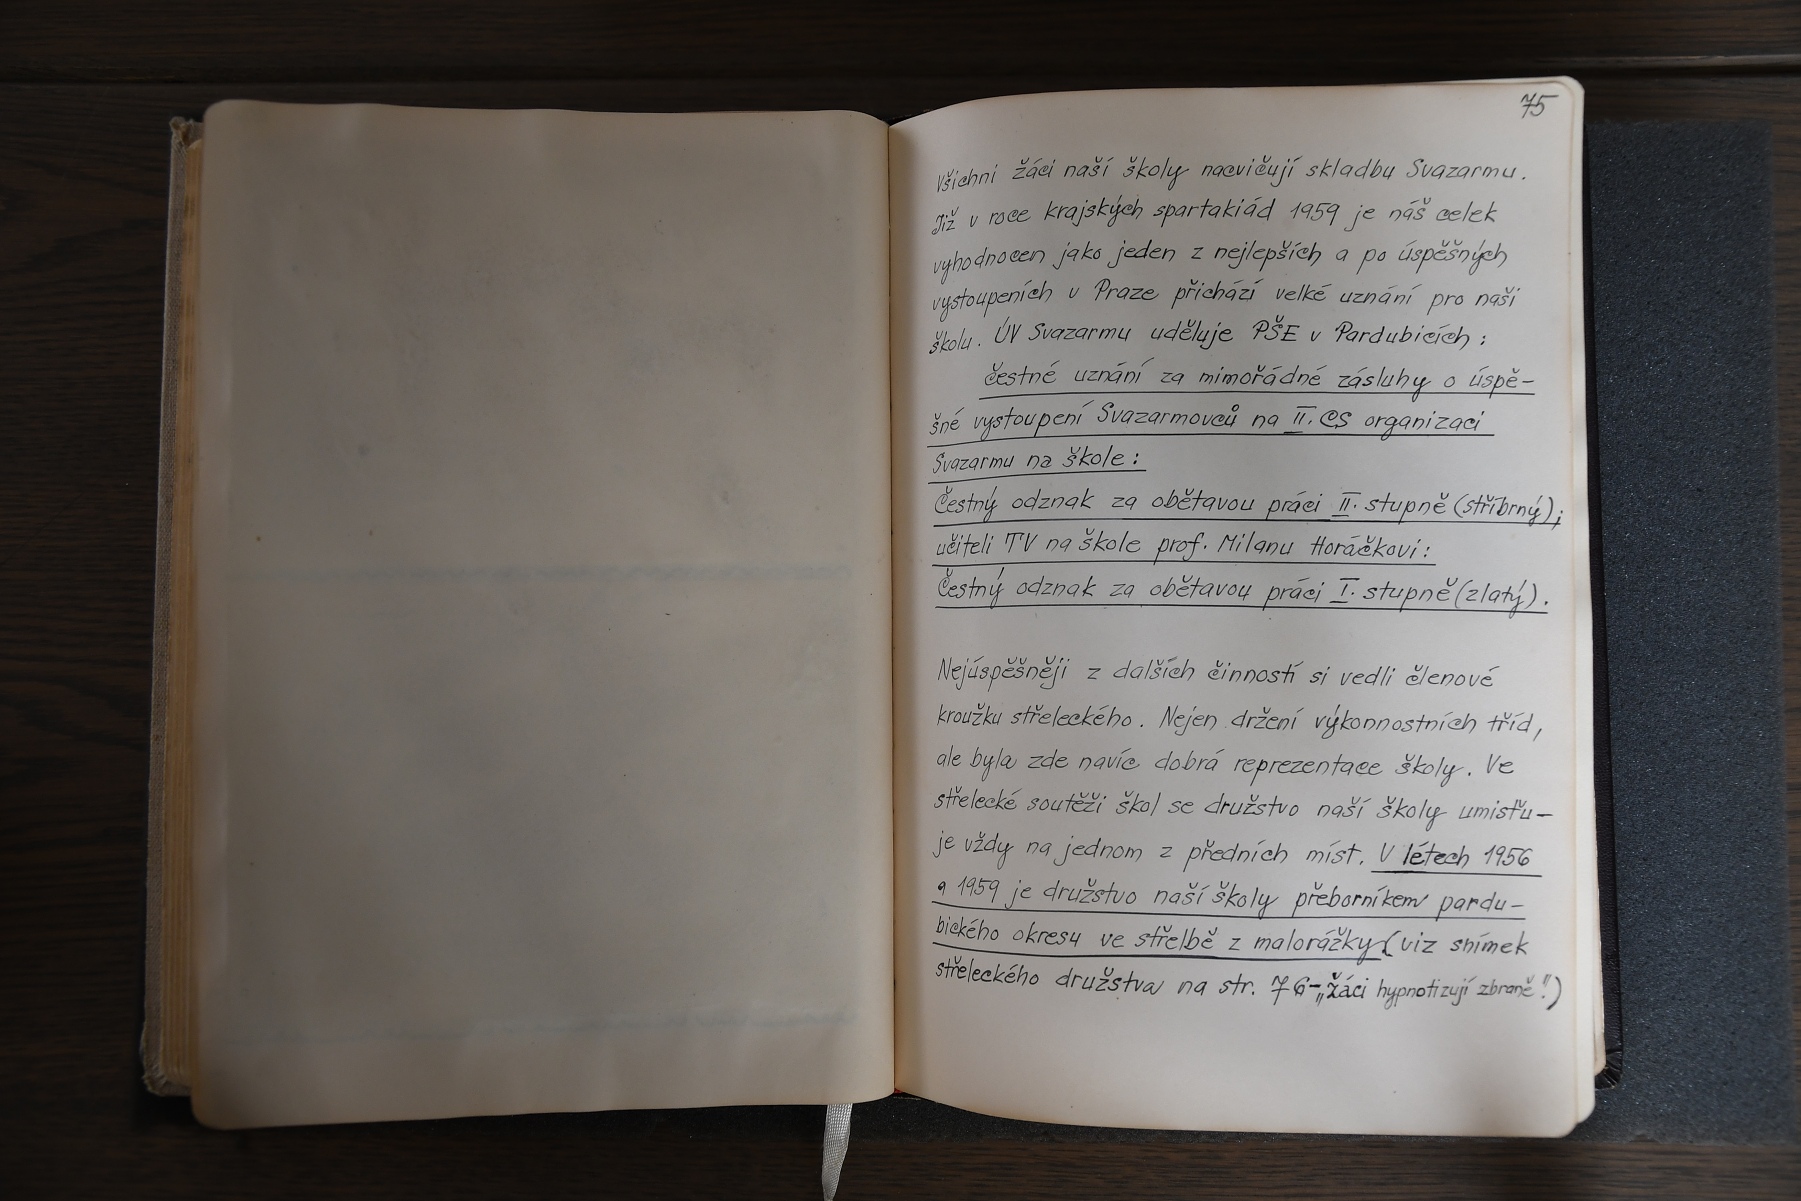 75
Všichni žáci naší školy nacvičují skladbu Svazarmu.
Již v roce krajských spartakiád 1959 je náš celek
vyhodnocen jako jeden z nejlepších a po úspěšných
vystoupeních v Praze přichází velké uznání pro naši
školu. ÚV Svazarmu uděluje PŠE v Pardubicích:
čestné uznání za mimořádné zásluhy o úspě-
šné vystoupení Svazarmovců na II. CS organizaci
Svazarmu na škole:
Čestný odznak za obětavou práci II. stupně (stříbrný);
učiteli TV na škole prof. Milanu Horáčkovi:
Čestný odznak za obětavou práci I. stupně (zlatý).
Nejúspěšněji z dalších činností si vedli členové
kroužku střeleckého. Nejen držení výkonnostních tříd,
ale byla zde navíc dobrá reprezentace školy. Ve
střelecké soutěži škol se družstvo naší školy umisťu-
je vždy na jednom z předních míst. V létech 1956
a 1959 je družstvo naší školy přeborníkem pardu-
bického okresu ve střelbě z malorážky (viz snímek
střeleckého družstva na str. 76-„žáci hypnotizují zbraně"!)